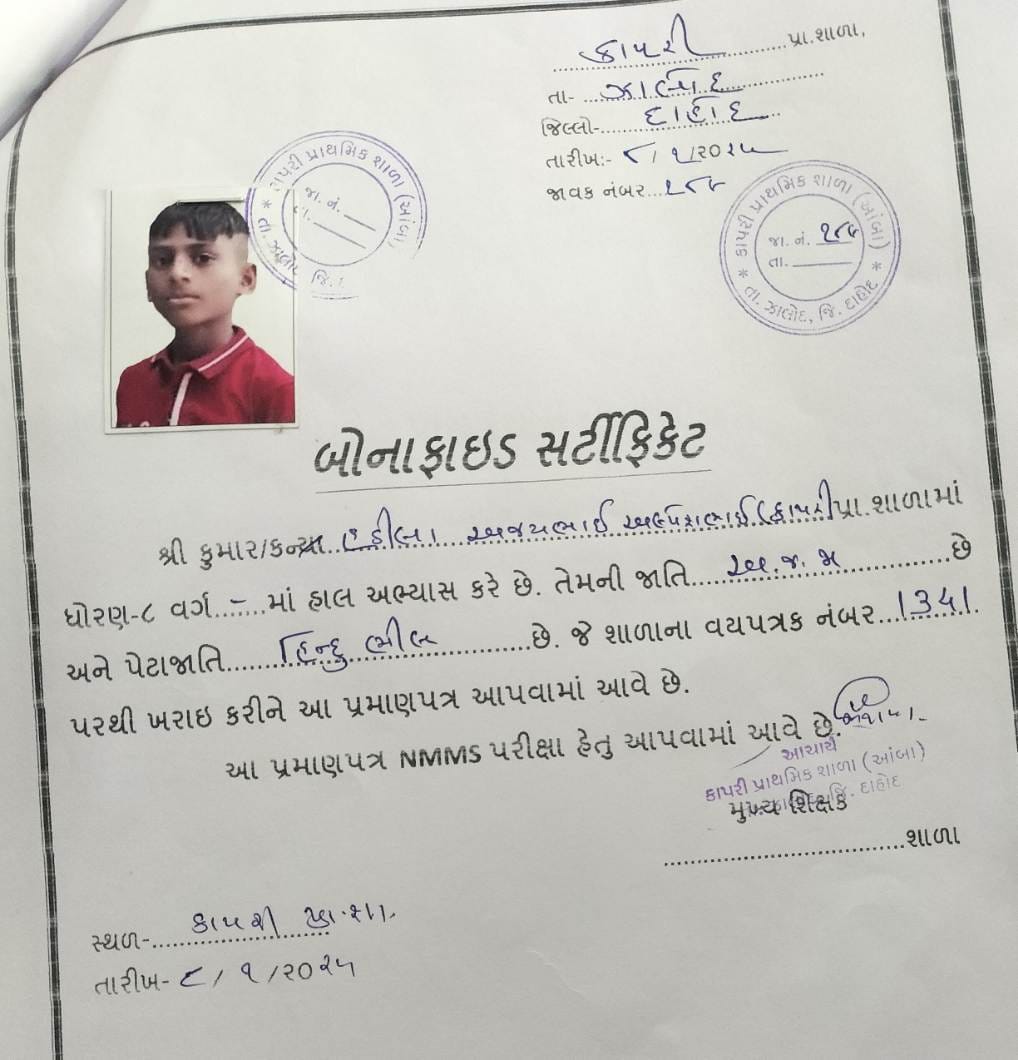 કાપરી પ્રા.શાળા,
તા- ઝાલોદ
જિલ્લો- દાહોદ
તારીખ:- ૮/ ૧/૨૦૨૫
જાવક નંબર...
કાપરી પ્રાથમિક શાળા (આંબા)
જા. નં.
તા.
તા. ઝાલોદ, જિ.
કાપરી પ્રાથમિક શાળા (આંબા)
જા. નં.
તા.
* તા. ઝાલોદ, જિ. દાહોદ *
બોનાફાઇડ સર્ટીફિકેટ
શ્રી કુમાર/કન્યા... અજયભાઈ (કાપરી પ્રા.શાળામાં
ધોરણ-૮ વર્ગ...-...માં હાલ અભ્યાસ કરે છે. તેમની જાતિ... અ.જ.જા ...છે
અને પેટાજાતિ... હિન્દુ ભીલ ...છે. જે શાળાના વયપત્રક નંબર...1341.
પરથી ખરાઇ કરીને આ પ્રમાણપત્ર આપવામાં આવે છે.
આ પ્રમાણપત્ર NMMS પરીક્ષા હેતુ આપવામાં આવે છે.
આચાર્ય
કાપરી પ્રાથમિક શાળા (આંબા)
જિ. દાહોદ
મુખ્ય શિક્ષક
...શાળા
સ્થળ-... કાપરી પ્રા.શા.
તારીખ- ૮/ ૧/૨૦૨૫